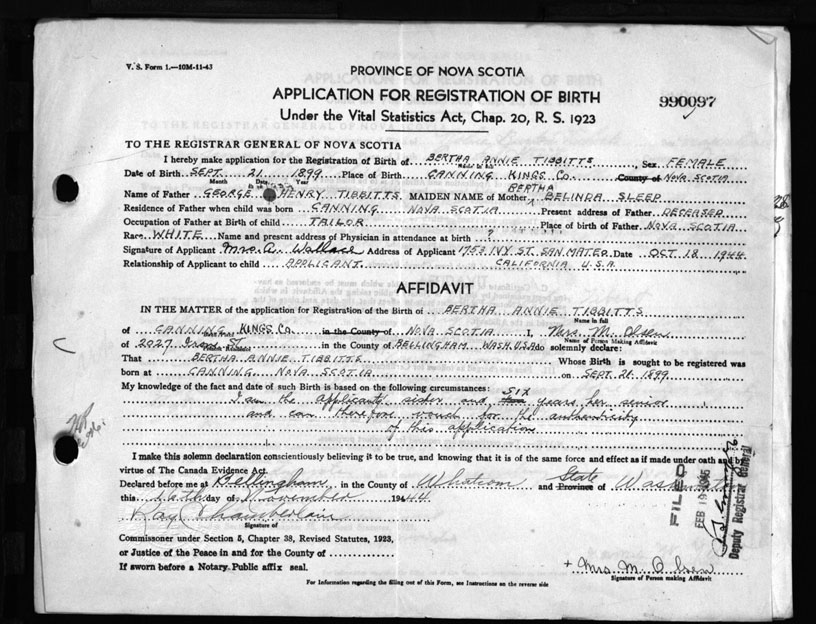 V. S. Form 1.—10M-11-43
PROVINCE OF NOVA SCOTIA
APPLICATION FOR REGISTRATION OF BIRTH
990097
Under the Vital Statistics Act, Chap. 20, R. S. 1923
TO THE REGISTRAR GENERAL OF NOVA SCOTIA
I hereby make application for the Registration of Birth of BERTHA ANNIE TIBBITTS, Sex FEMALE
Date of Birth SEPT. 21 1899 Place of Birth CANNING KINGS CO. County of NOVA SCOTIA
Month Date Year
BERTHA
Name of Father GEORGE HENRY TIBBITTS MAIDEN NAME of Mother BELINDA SLEEP
Residence of Father when child was born CANNING NOVA SCOTIA Present address of Father DECEASED
Occupation of Father at Birth of child TAILOR Place of birth of Father NOVA SCOTIA
Race WHITE Name and present address of Physician in attendance at birth ?
Signature of Applicant Mrs. A. Wallace Address of Applicant 1753 IVY ST. SAN MATEO Date OCT 18 1944
Relationship of Applicant to child APPLICANT CALIFORNIA U.S.A.
AFFIDAVIT
IN THE MATTER of the application for Registration of the Birth of BERTHA ANNIE TIBBITTS
Name in full
of CANNING KINGS CO. in the County of NOVA SCOTIA I, Mrs. M. Olsen
Name of Person Making Affidavit
of 2027 St in the County of BELLINGHAM WASH. U.S.A do solemnly declare:
That BERTHA ANNIE TIBBITTS Whose Birth is sought to be registered was
born at CANNING NOVA SCOTIA on SEPT. 21. 1899
My knowledge of the fact and date of such Birth is based on the following circumstances:
SIX
I am the applicants sister and years her senior
and can therefore vouch for the authenticity
of this application
I make this solemn declaration conscientiously believing it to be true, and knowing that it is of the same force and effect as if made under oath and by
virtue of The Canada Evidence Act.
Declared before me at Bellingham, in the County of Whatcom and Province of State Washington
this day of November 1944
Ray Chamberlain
Signature of
Commissioner under Section 5, Chapter 38, Revised Statutes, 1923,
or Justice of the Peace in and for the County of
If sworn before a Notary Public affix seal.
+ Mrs. M. Olsen
Signature of Person making Affidavit
For Information regarding the filling out of this Form, see Instructions on the reverse side
FILED
FEB 19 1945
Deputy Registrar General